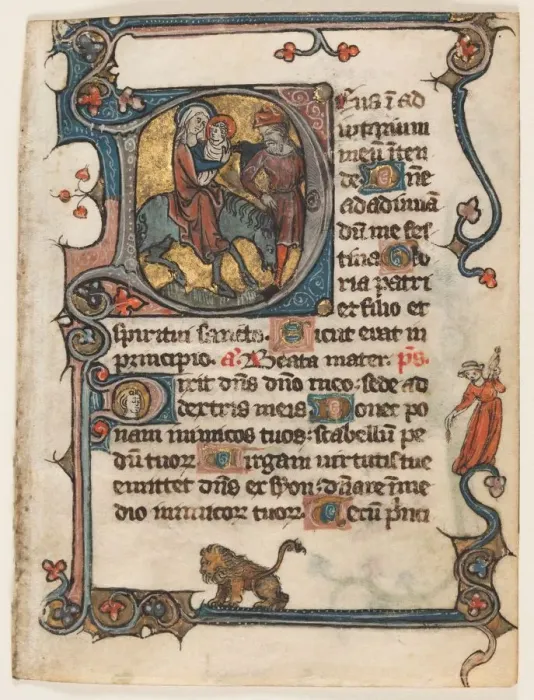 Deus ī ad
iutorium
meū inten
de. Dn̄e
ad adiuuā
dū me fes
tina. Glo
ria patri
et filio et
spiritui sancto. Sicut erat in
principio. a. Beata mater. p̄s.
Dixit dn̄s dn̄o meo: sede ad
dextris meis. Donec po
nam inimicos tuos: scabellū pe
dū tuoꝝ. Virgam uirtutis tue
emittet dn̄s ex syon: dn̄are ī me
dio inimicoꝝ tuoꝝ. Tecū pͥnci